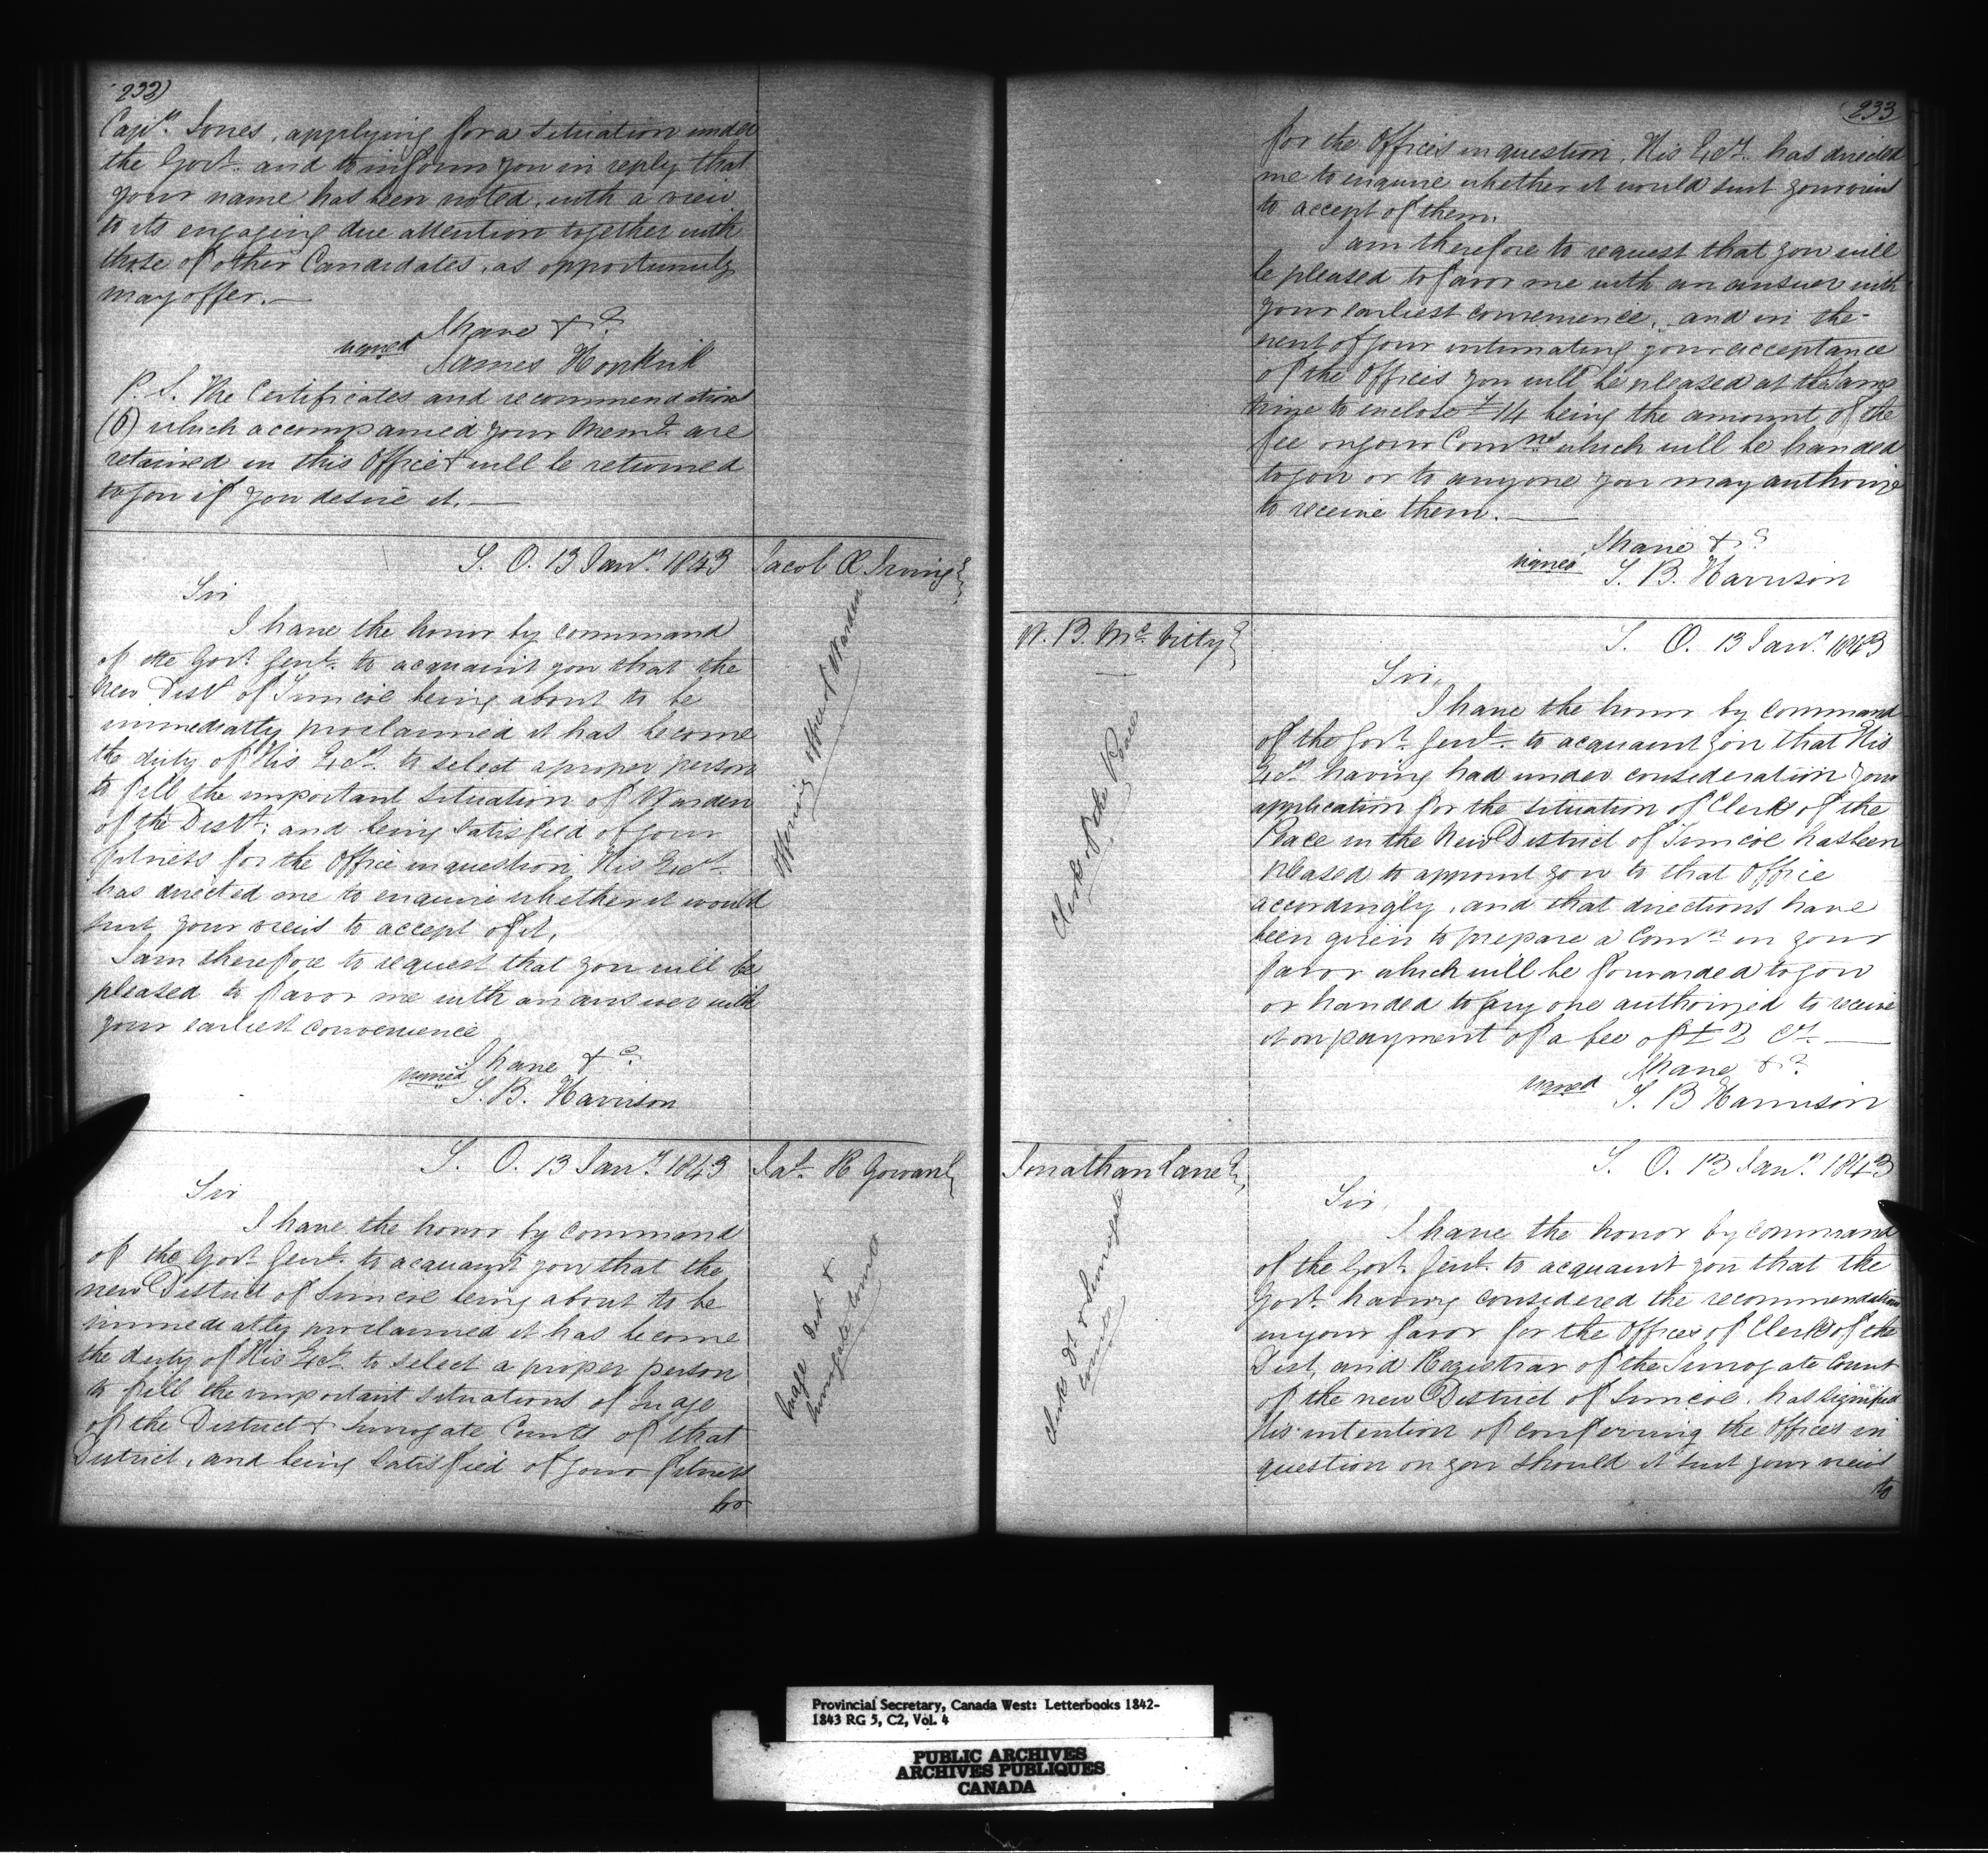 232)
Capn. Jones, applying for a situation under
the Govt. and to inform you in reply that
your name has been noted, with a view
to its engaging due attention together with
those of other Candidates, as opportunity
may offer.—
I have &c.
signed James Hopkirk
P.S. The Certificates and recommendations
(6) which accompanied your Meml. are
retained in this Office & will be returned
to you if you desire it.—
S. O. 13 Jany. 1843
Jacob Æ Irving Esq.
offering office of Warden
Sir
I have the honor by command
of the Govr. Genl. to acquaint you that the
new Distt. of Simcoe being about to be
immediatly proclaimed it has become
the duty of His Excy. to select a proper person
to fill the important situation of Warden
of the Distt; and being satisfied of your
fitness for the Office in question, His Excy.
has directed me to enquire whether it would
suit your views to accept of it.
I am therefore to request that you will be
pleased to favor me with an answer with
your earliest convenience
I have &c.
signed S. B. Harrison
S. O. 13 Jany. 1843
Jas. R Gowan Esq
Judge Dist &
Surrogate Courts
Sir
I have the honor by command
of the Govr. Genl. to acquaint you that the
new District of Simcoe being about to be
immediatly proclaimed it has become
the duty of His Excy. to select a proper person
to fill the important situations of Judge
of the District & Surrogate Courts of that
District, and being satisfied of your fitness
for
233
for the Offices in question, His Excy. has directed
me to enquire whether it would suit your views
to accept of them.
I am therefore to request that you will
be pleased to favor me with an answer with
your earliest convenience, and in the
event of your intimating your acceptance
of the Offices you will be pleased at the same
time to enclose £14 being the amount of the
fee on your Comns. which will be handed
to you or to anyone you may authorize
to receive them.—
I have &c.
signed S. B. Harrison
W. B. McVity Esq
Clerk of the Peace
S. O. 13 Jany. 1843
Sir,
I have the honor by command
of the Govr. Genl. to acquaint you that His
Excy. having had under consideration your
application for the situation of Clerk of the
Peace in the New District of Simcoe has been
pleased to appoint you to that Office
accordingly, and that directions have
been given to prepare a Comn. in your
favor which will be forwarded to you
or handed to any one authorized to receive
it on payment of a fee of £2 Cy.—
I have &c.
signed S. B Harrison
Jonathan Lane Esq,
Clerk Dt. & Surrogate
Courts
S. O. 13 Jany. 1843
Sir,
I have the honor by command
of the Govr. Genl. to acquaint you that the
Govr. having considered the recommendation
in your favor for the Offices of Clerk of the
Dist, and Registrar of the Surrogate Court
of the new District of Simcoe, has signified
His intention of conferring the Offices in
question on you should it suit your views
to
Provincial Secretary, Canada West: Letterbooks 1842-
1843 RG 5, C2, Vol. 4
PUBLIC ARCHIVES
ARCHIVES PUBLIQUES
CANADA